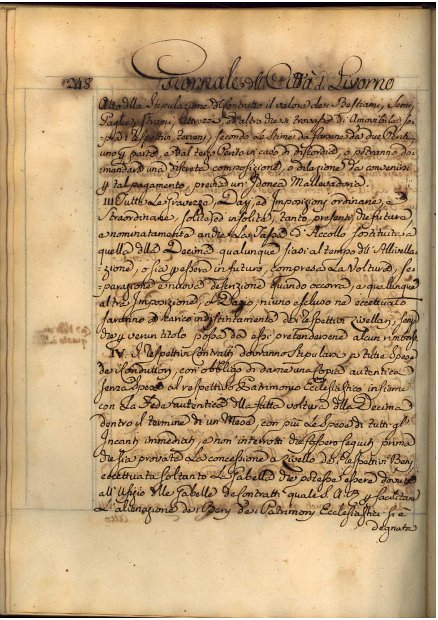 248
Giornale della Città di Livorno
Atto della Stipulazione del Contratto il valore dei Bestiami, Semi,
Paglie, Strami, Attrezzi ed altro che si trovasse di Amovibile so-
pra dei respettivi terreni, secondo le Stime da farsene da due Periti
uno per parte, e dal terzo Perito in caso di discordia, o potranno do-
mandare una discreta composizione, o dilazione da convenirsi
per tal pagamento, previa un'Idonea Mallevadoria.
III Tutte le Gravezze, Dazj, ed Imposizioni ordinarie, e
Straordinarie, solite ed insolite, tanto presenti, che future,
e nominatamente anche la Tassa d'Accollo sostituita a
quella della Decima qualunque siasi al tempo dell'Allivella-
zione, o sia per essere in futuro, compresa la Voltura, se-
parazione e nuova descrizione quando occorra, e qualunque
altra Imposizione, e Dazio, niuno escluso ne eccettuato
saranno a carico indistintamente dei respettivi Livellarj, senza
che per verun titolo possa da essi pretendersene alcun rimborso.
IV. I respettivi Contratti dovranno Stipularsi a tutte Spese
dei Conduttori, con obbligo di darne una copia autentica
senza Spesa al respettivo Patrimonio Ecclesiastico insieme
con la Fede autentica della fatta voltura alla Decima
dentro il termine di un Mese, con più le Spese di tutti gl'
Incanti immediati, e non interrotti che fossero seguiti prima
che sia provata la concessione a Livello dei respettivi Beni
eccettuata soltanto la Gabella che potesse essere dovuta
all'Ufizio delle Gabelle dei Contratti quale S. A. R. per facilitare
l'alienazione dei Beni dei Patrimonj Ecclesiastici si è
degnata